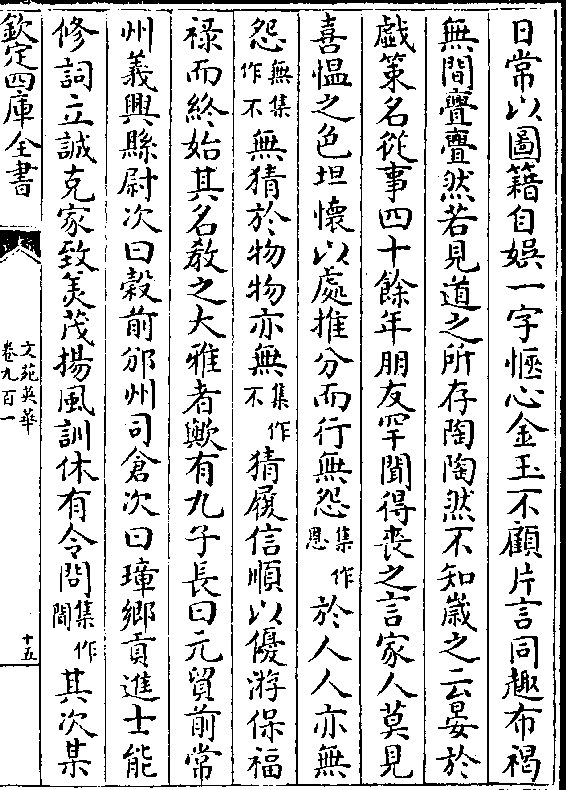 日常以圖籍自娛一字愜心金玉不顧片言同趣布褐
無間亹亹然若見道之所存陶陶然不知歲之云晏於
戯策名從事四十餘年朋友罕聞得喪之言家人莫見
喜愠之色坦懷以處推分而行無怨集作恩於人人亦無
怨無集作不無猜於物物亦無集作不猜履信順以優游保福
禄而終始其名教之大雅者歟有九子長曰元質前常
州義興縣尉次曰穀前邠州司倉次曰璋鄉貢進士能
修詞立誠克家致美茂揚風訓休有令問集作聞其次某
欽定四庫全書
文苑英華
卷九百一
十五